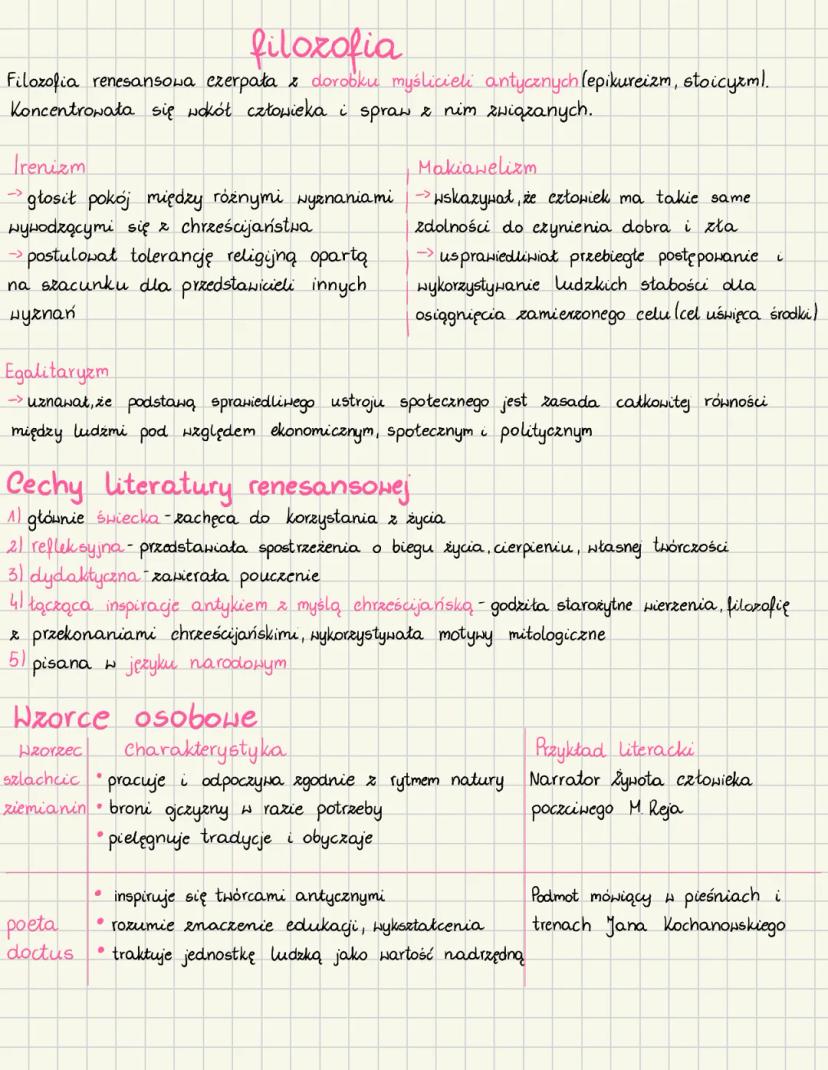 filozofia
Filozofia renesansowa czerpała z dorobku myślicieli antycznych (epikureizm, stoicyzm).
Koncentrowała się wokół człowieka i spraw z nim związanych.
Irenizm
→ głosił pokój między różnymi wyznaniami
wywodzącymi się z chrześcijaństwa
→ postulował tolerancję religijną opartą
na szacunku dla przedstawicieli innych
wyznań
Makiawelizm
→ wskazywał, że człowiek ma takie same
zdolności do czynienia dobra i zła
→ usprawiedliwiał przebiegłe postępowanie i
wykorzystywanie ludzkich słabości dla
osiągnięcia zamierzonego celu (cel uświęca środki)
Egalitaryzm
→ uznawał, że podstawą sprawiedliwego ustroju społecznego jest zasada całkowitej równości
między ludźmi pod względem ekonomicznym, społecznym i politycznym
Cechy literatury renesansowej
1) głównie świecka - zachęca do korzystania z życia
2) refleksyjna - przedstawiała spostrzeżenia o biegu życia, cierpieniu, własnej twórczości
3) dydaktyczna - zawierała pouczenie
4) łącząca inspiracje antykiem z myślą chrześcijańską - godziła starożytne wierzenia, filozofię
z przekonaniami chrześcijańskimi, wykorzystywała motywy mitologiczne
5) pisana w języku narodowym
Wzorce osobowe
wzorzec
charakterystyka
Przykład literacki
szlachcic
ziemianin
• pracuje i odpoczywa zgodnie z rytmem natury
• broni ojczyzny w razie potrzeby
• pielęgnuje tradycje i obyczaje
Narrator Żywota człowieka
poczciwego M. Reja
poeta
doctus
• inspiruje się twórcami antycznymi
• rozumie znaczenie edukacji, wykształcenia
• traktuje jednostkę ludzką jako wartość nadrzędną
Podmot mówiący w pieśniach i
trenach Jana Kochanowskiego